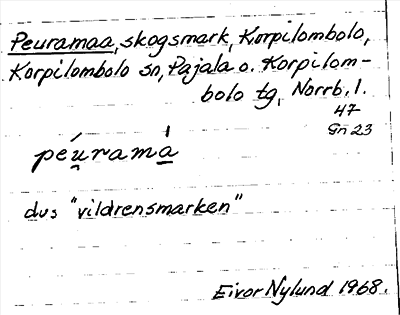 Peuramaa, skogsmark, Korpilombolo,
Korpilombolo sn, Pajala o. Korpilom-
bolo tg, Norrb. l.
47
Gn 23
péu̯ramá̱
dvs "vildrensmarken"
Eivor Nylund 1968.